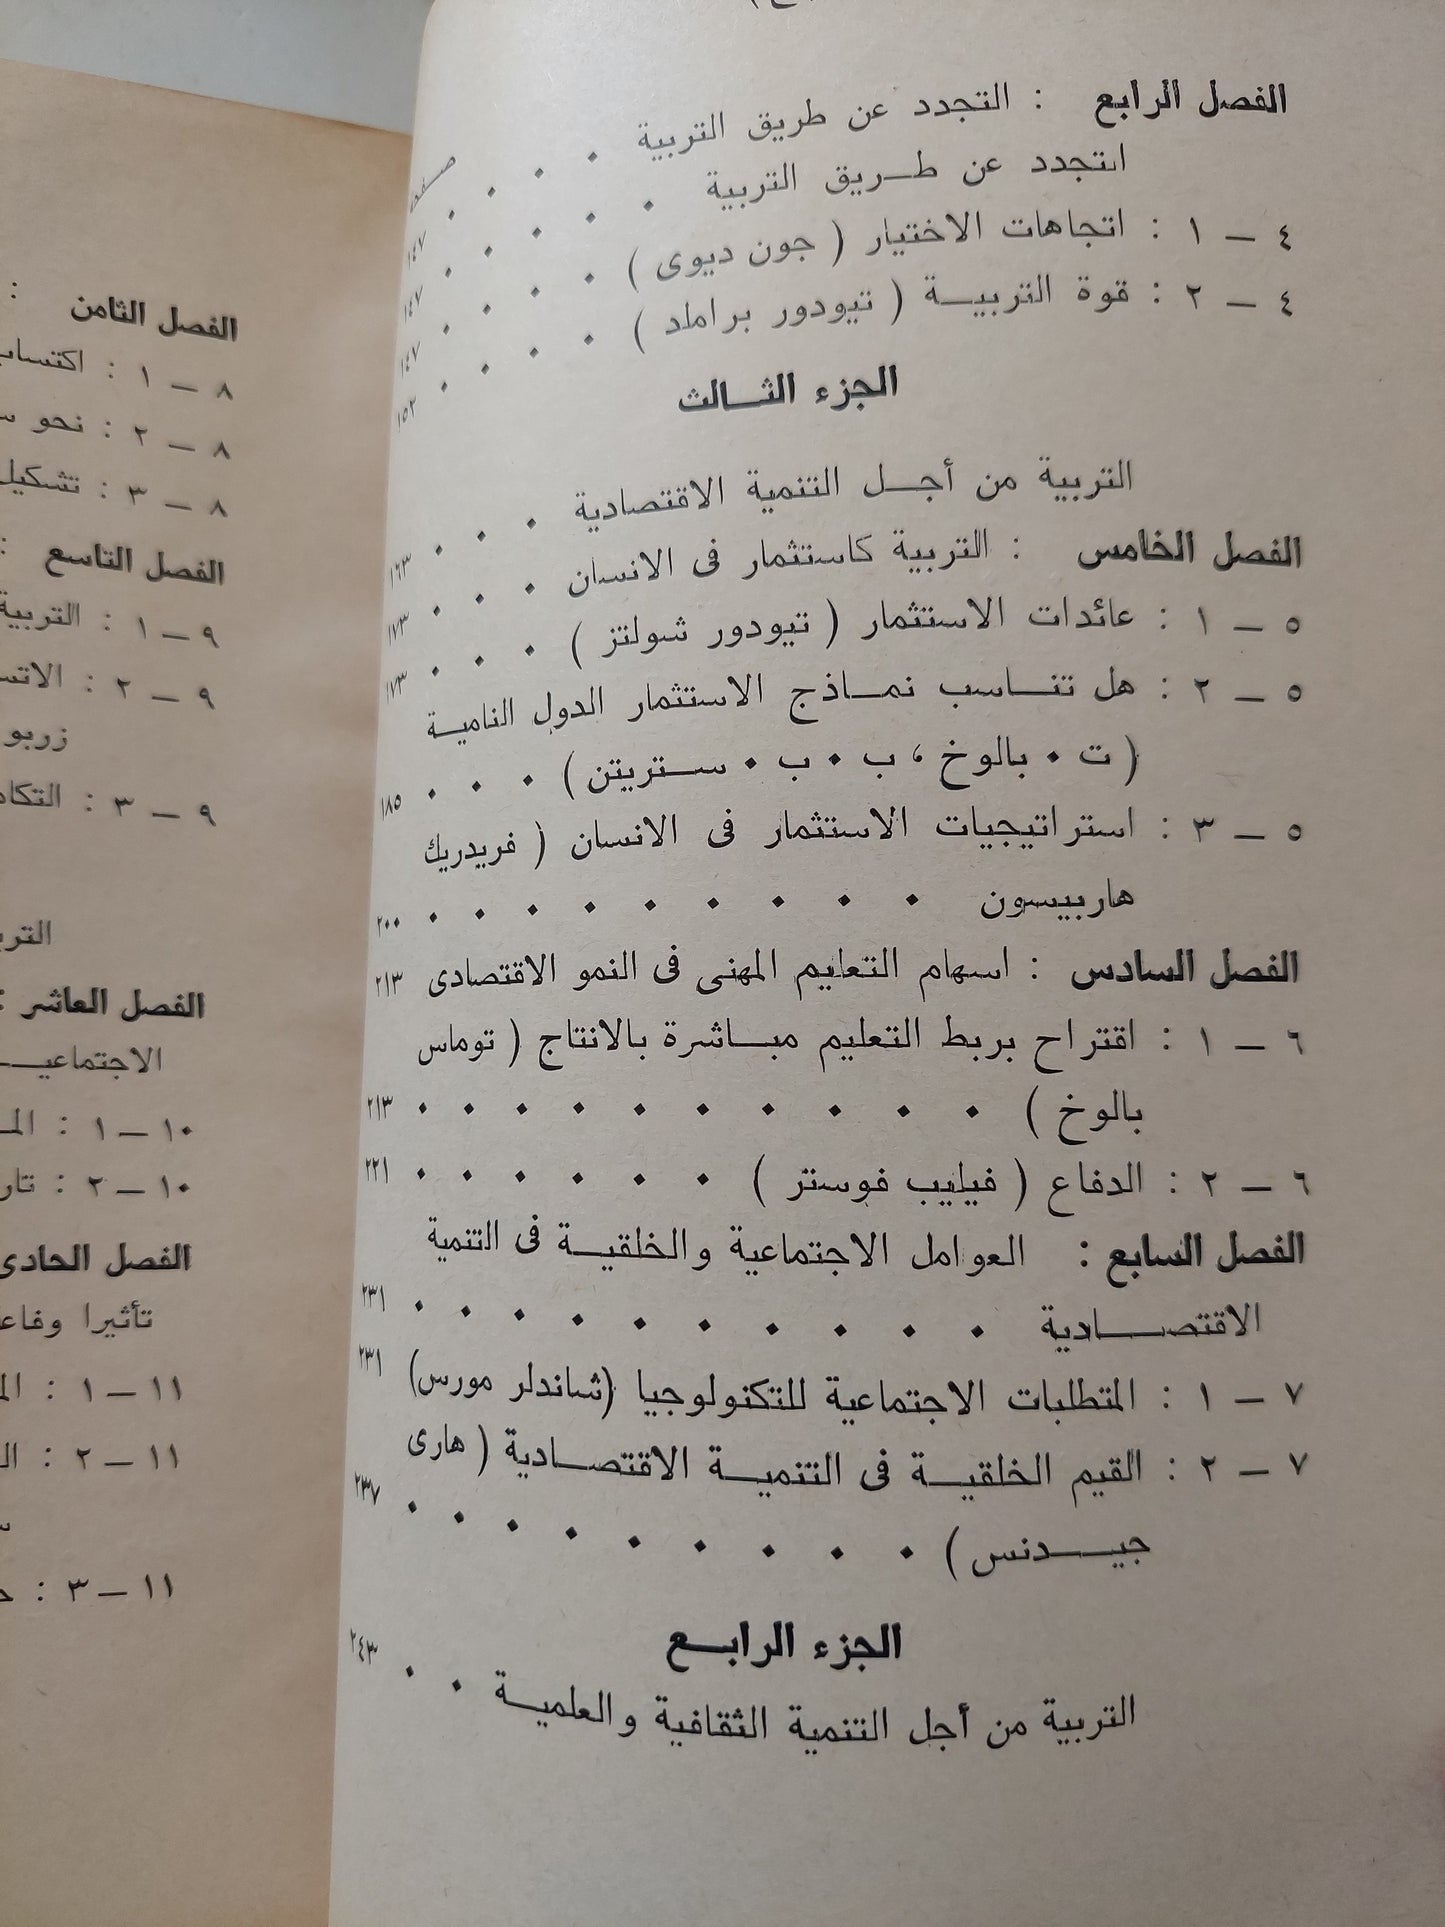 صفحة
الفصل الرابع : التجدد عن طريق التربية . . . . ١٤٧
التجدد عن طـريق التربية . . . . . ١٤٧
٤ — ١ : اتجاهات الاختيار ( جون ديوى ) . . . . ١٤٧
٤ — ٢ : قوة التربيـة ( تيودور براملد ) . . . . ١٥٢
الجزء الثـالث
التربية من أجـل التنمية الاقتصادية . . . ١٦٣
الفصل الخامس : التربية كاستثمار فى الانسان . . . ١٧٣
٥ — ١ : عائدات الاستثمار ( تيودور شولتز ) . . . ١٧٣
٥ — ٢ : هل تنـاسب نمـاذج الاستثمار الدول الناميـة
( ت . بالوخ ، ب . ب . ستريتن ) . . . ١٨٥
٥ — ٣ : استراتيجيات الاستثمار فى الانسان ( فريدريك
هاربيسون . . . . . . . . . ٢٠٠
الفصل السادس : اسهام التعليم المهنى فى النمو الاقتصادى ٢١٣
٦ — ١ : اقتراح بربط التعليم مبـاشرة بالانتاج ( توماس
بالوخ ) . . . . . . . . . . ٢١٣
٦ — ٢ : الدفاع ( فيليب فوستر ) . . . . . . ٢٢١
الفصل السابع : العوامل الاجتماعية والخلقيـة فى التنمية
الاقتصـادية . . . . . . . . . . ٢٣١
٧ — ١ : المتطلبات الاجتماعية للتكنولوجيا (شاندلر مورس) ٢٣١
٧ — ٢ : القيم الخلقيـة فى التنميـة الاقتصـادية ( هارى
جيـدنس ) . . . . . . . . . ٢٣٧
الجزء الرابـع
التربية من أجل التنمية الثقافية والعلميـة . . ٢٤٣
الفصل الثامن :
٨ — ١ :
٨ — ٢ : نحو
٨ — ٣ : تشكيل
الفصل التاسع :
٩ — ١ : التربية
٩ — ٢ :
٩ — ٣ :
الفصل العاشر :
الاجتماعيـ
١٠ — ١ :
١٠ — ٢ :
الفصل الحادى
تأثيرا
١١ — ١ :
١١ — ٢ :
١١ — ٣ :